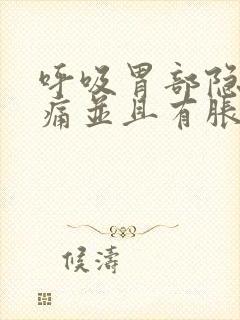 呼吸胃部隐
痛並且有脹
候濤